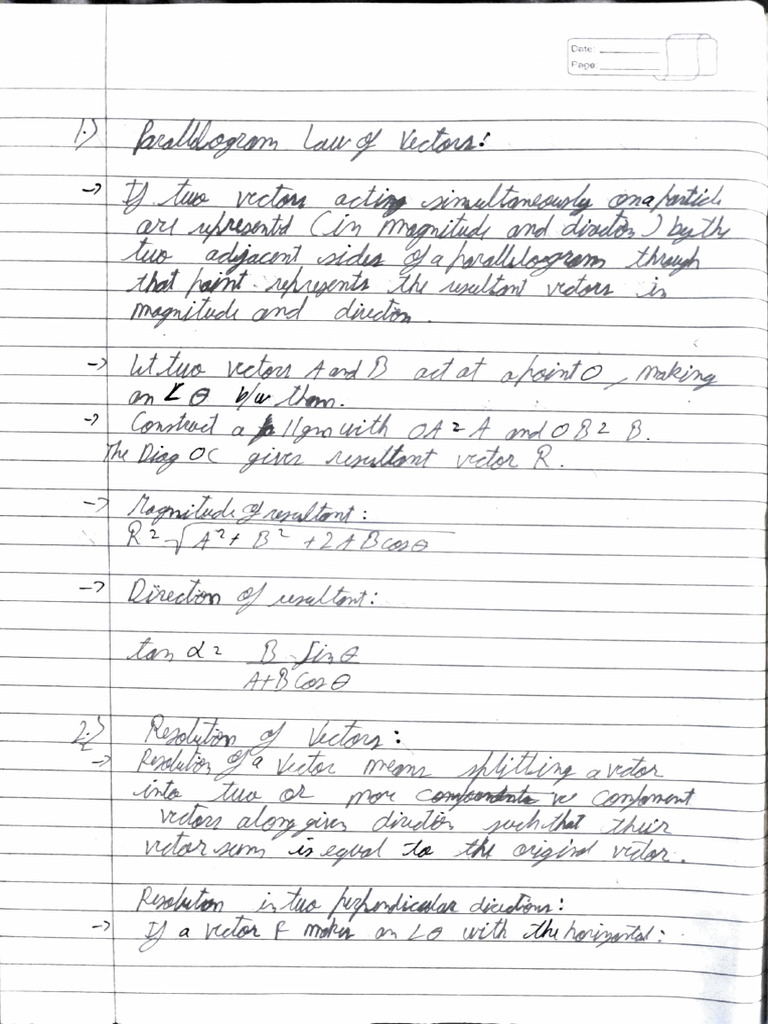 Date:
Page:
1.) Parallelogram Law of Vectors:
→ If two vectors acting simultaneously on a particle
are represented (in magnitude and direction) by the
two adjacent sides of a parallelogram through
that point represents the resultant vectors in
magnitude and direction.
→ Let two vectors A and B act at a point O, making
an ∠ θ b/w them.
→ Construct a ||gm with OA = A and OB = B.
The Diag OC gives resultant vector R.
→ Magnitude of resultant:
R = √A² + B² + 2AB cos θ
→ Direction of resultant:
tan α = B Sin θ
A+B Cos θ
2.) Resolution of Vectors:
→ Resolution of a Vector means splitting a vector
into two or more components ve component
vectors along given direction such that their
vector sum is equal to the original vector.
Resolution in two perpendicular directions:
→ If a vector F makes an ∠θ with the horizontal: